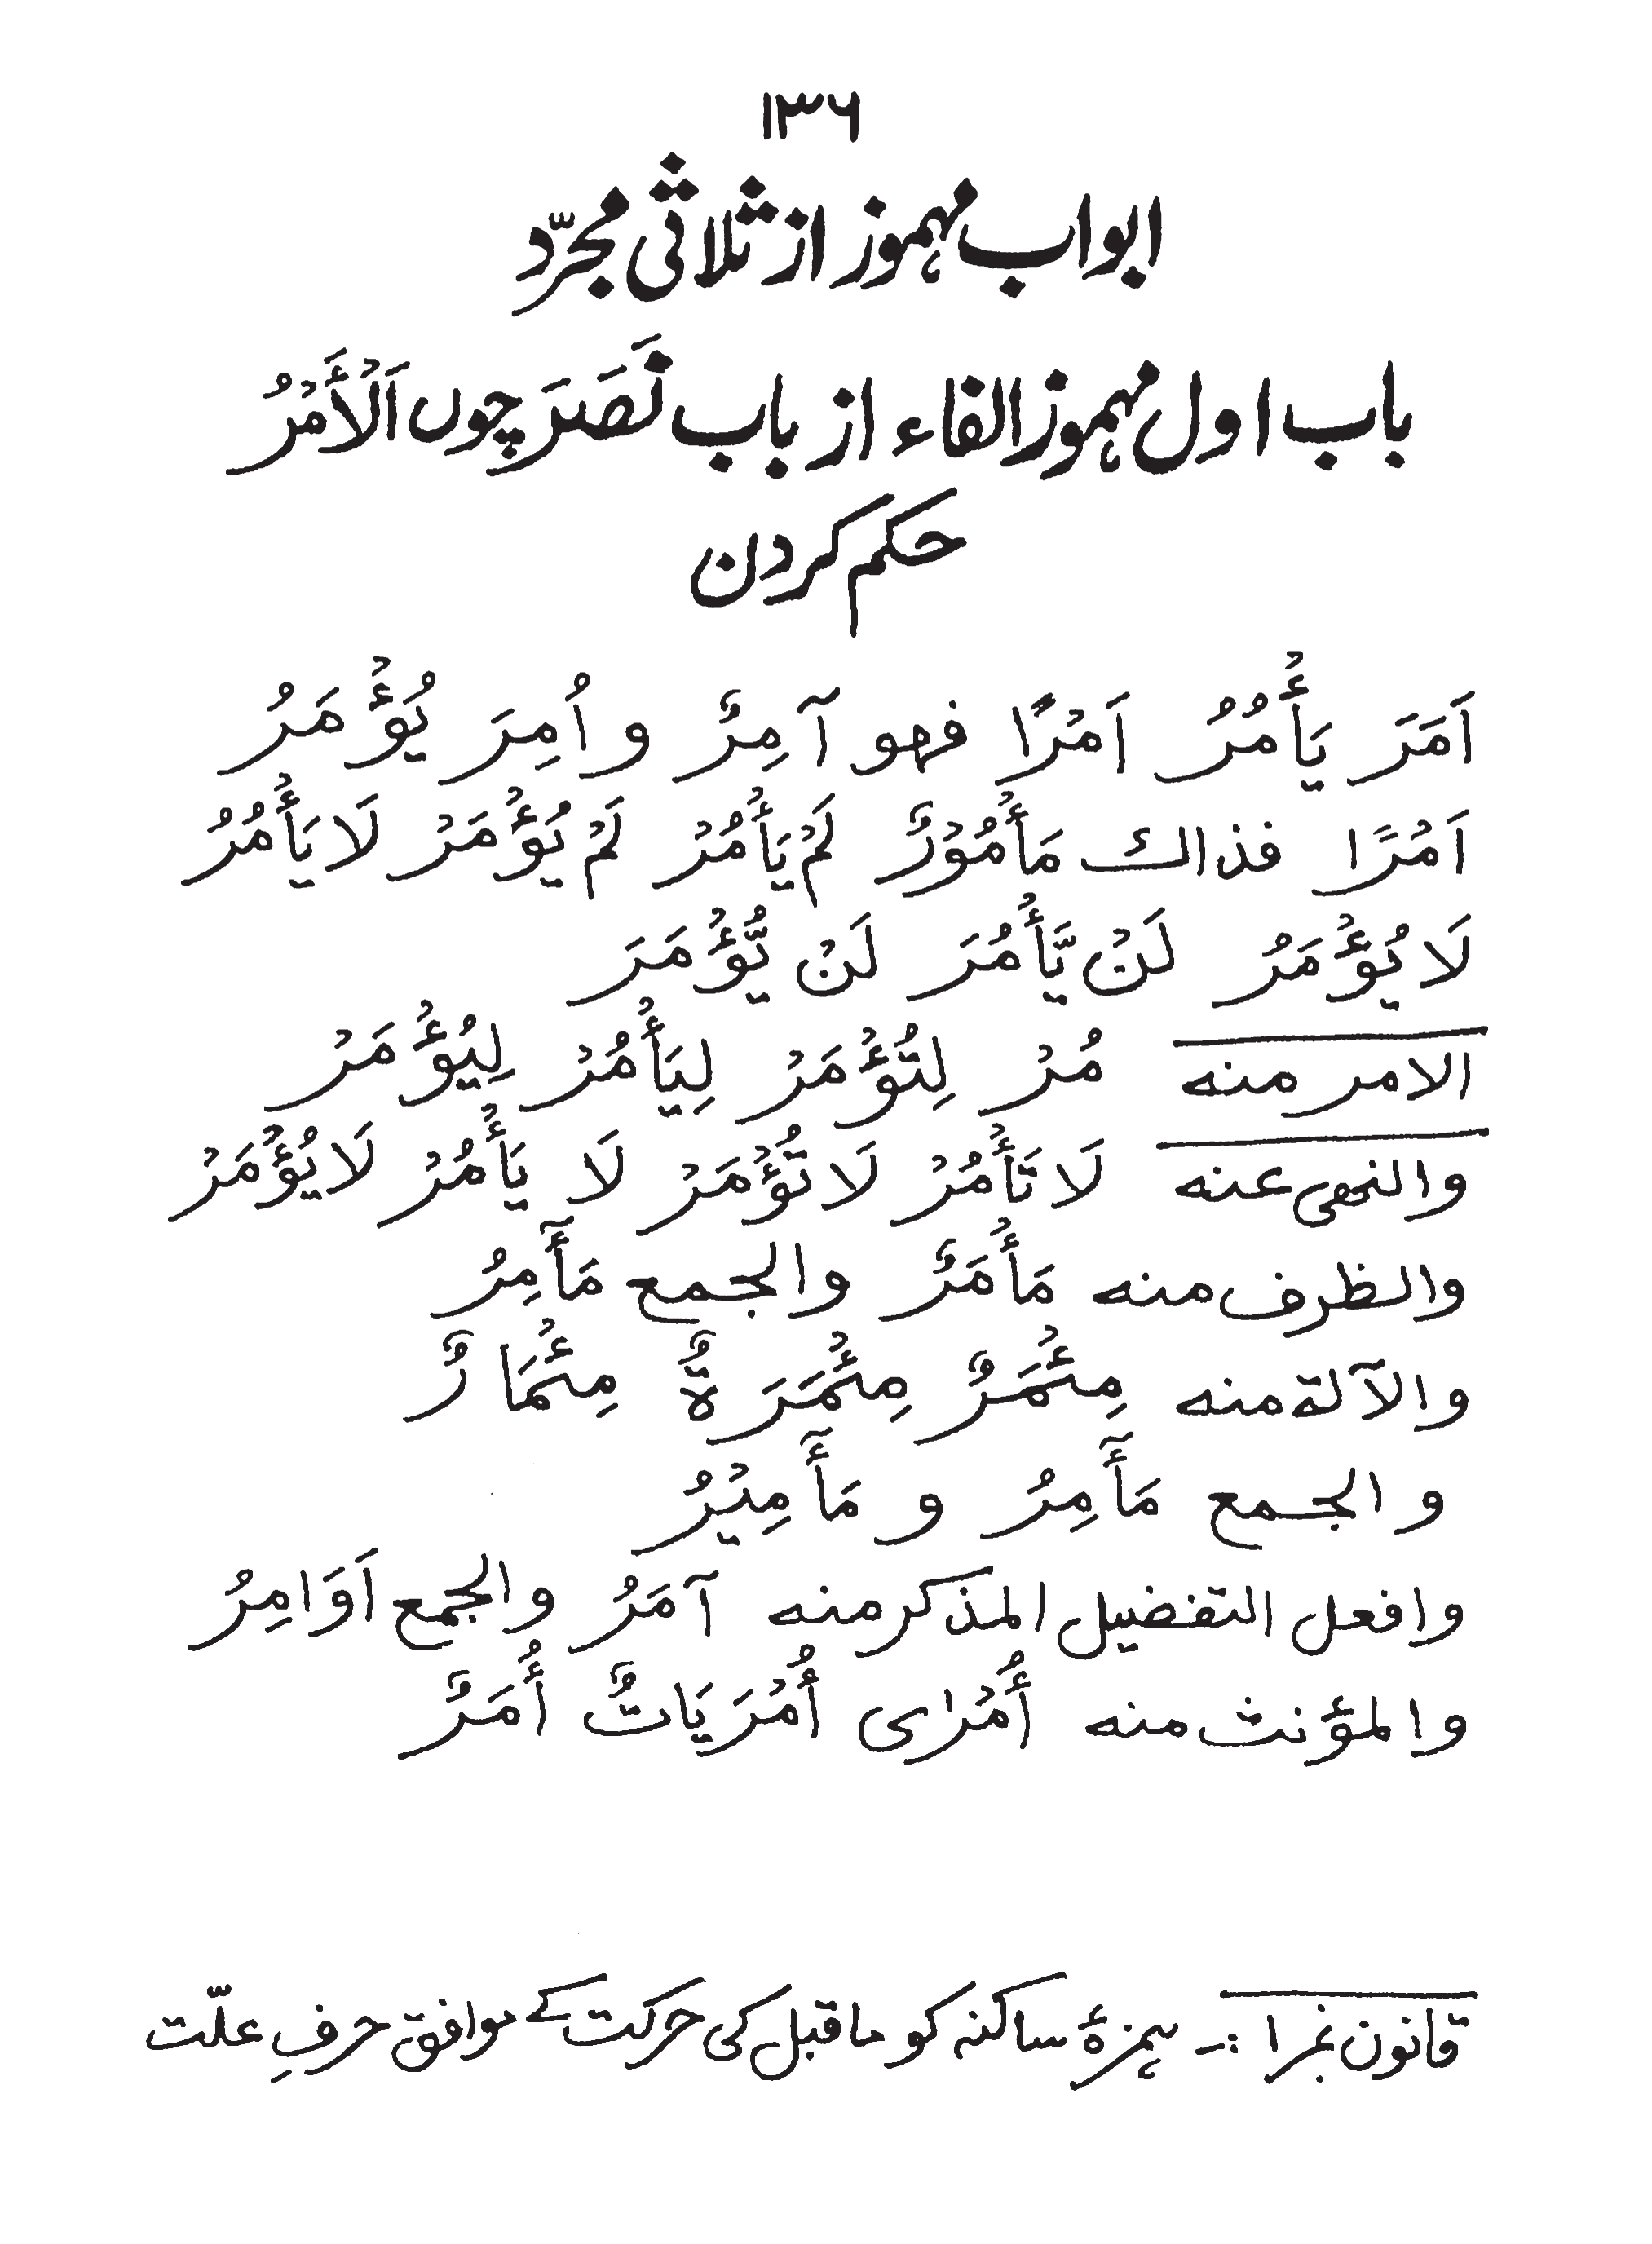 ۱۳۶
ابواب مہموز از ثلاثی مجرّد
باب اول مہموز الفاء از باب نَصَرَ چوں اَلْأَمْرُ
حکم کردن
اَمَرَ يَأْمُرُ اَمْرًا فهو آمِرٌ و اُمِرَ يُؤْمَرُ
اَمْرًا فذاك مَأْمُوْرٌ لَمْ يَأْمُرْ لَمْ يُؤْمَرْ لَا يَأْمُرُ
لَا يُؤْمَرُ لَنْ يَّأْمُرَ لَنْ يُّؤْمَرَ
الامر منه مُرْ لِتُؤْمَرْ لِيَأْمُرْ لِيُؤْمَرْ
والنهى عنه لَا تَأْمُرْ لَا تُؤْمَرْ لَا يَأْمُرْ لَا يُؤْمَرْ
والظرف منه مَأْمَرٌ والجمع مَآمِرُ
والآلة منه مِئْمَرٌ مِئْمَرَةٌ مِئْمَارٌ
والجمع مَآمِرُ و مَآمِيْرُ
وافعل التفضيل المذكر منه آمَرُ والجمع اَوَامِرُ
والمؤنث منه أُمْرٰى أُمْرَيَاتٌ أُمَرٌ
قانون نمبر ۱ :- ہمزۂ ساکنہ کو ماقبل کی حرکت کے موافق حرفِ علّت